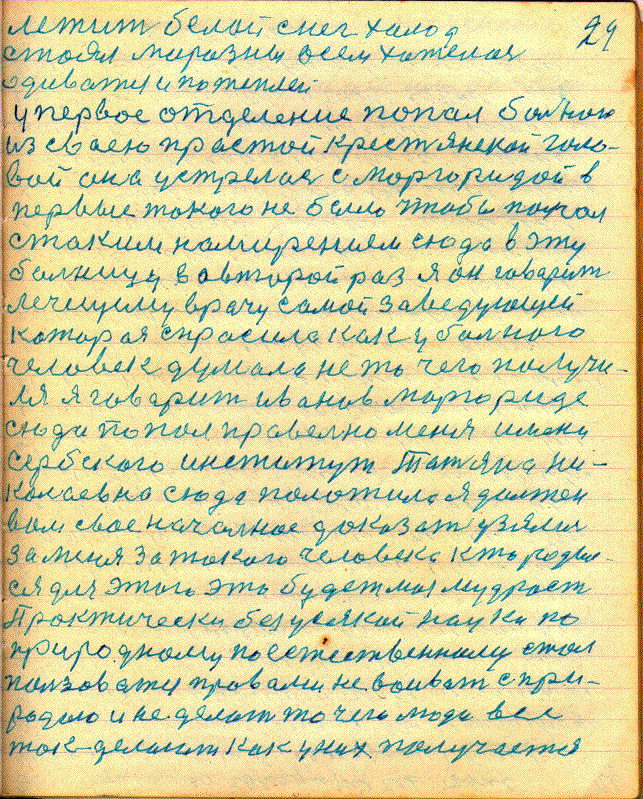 летит белой снег халод 29
стоял маразны всем хателая
одиватся и потеплей
у первое отделение попал больнои
из сваею прастой Крестянской голо-
вой она устрелая с Моргоридой в
первые токого не было чтобы попол
стаким намирением сюда в эту
болницу в овторой раз я он говарит
лечущему врачу самой заведующей
которая спрасила как у болного
человек думала не то чего получи-
ля я говарит иванов моргориде
сюда попол правелно меня имени
Сербского институт Татяна Ни-
колаевна сюда положила я должен
вам свое началное доказат узяли
за меня затокого человека кто родил-
ся для этого это будет мая мудраст
Практически без усякой науки по
природному по естественному стал
ползоватся правами не воиват с при-
родою и не делат то чего люди все
так делают как у них получается